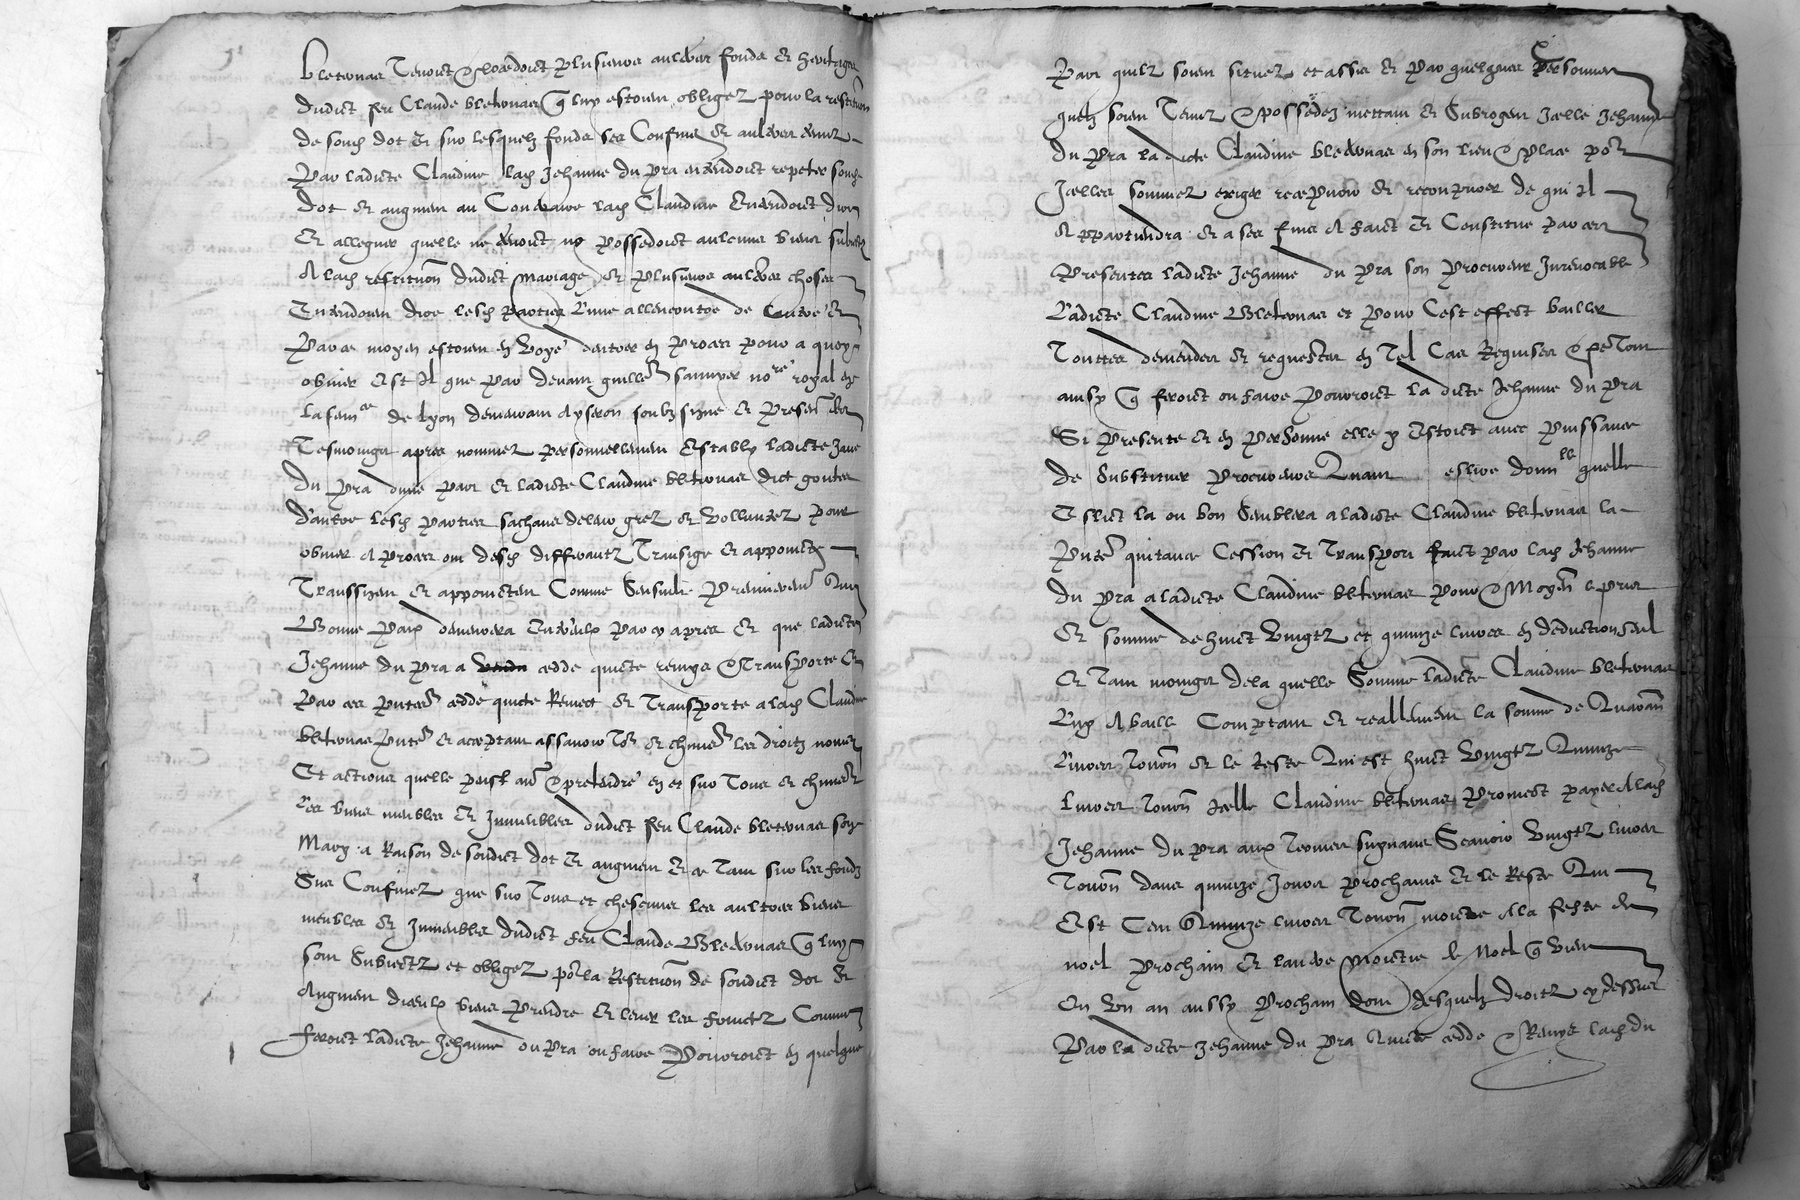 bleternas tenoict & possedoict plusieurs aultres fondz et heritages
dudict feu Claude bleternas q luy estoient obligez pour la restitution
de sond dot et sur lesquelz fondz ses Confins et aultres
Par ladicte Claudine lad Jehanne du pra entendoict repeter sond
dot et augment au Contraire lad Claudine Entendoict dire
Et alleguer quelle ne tenoict ny possedoict aulcuns biens subiectz
A lad restitution dudict mariage et plusieurs aultres choses
Entendoient dire lesd parties L'une allencontre de Laultre Et
Par ce moyen estoient en voye dentrer en proces pour a quoy
obvier Est Il que par devant guille sauuyer nore royal en
la sen de lyon demeurant a yseron soubzsigne et presentz les
Tesmoingz apres nommez personnellement Establys ladicte Jane
du pra dune part et ladicte Claudine bleternas dict gouttes
d'aultre lesd parties sachans de leur grez et vollunte pour
obvier A proces ont desd differantz Transige et appoincte
Transsigent et appoinctent Comme Sensuict Premierement Que
Bonne Paix demeurera Entreulx par cy apres Et que ladicte
Jehanne du pra a cedde quicte remys & Transporte Et
Par ces putes cedde quicte Remect et Transporte a lad Claudine
bleternas pnte et acceptant assavoir to et chun les droictz noms
Et actions quelle peult avoir & pretendre en et sur Tous et chuns
Les biens meubles et Immeubles dudict feu Claude bleternas son
Mary a Raison de sondict dot et augment et ce Tant sur les fondz
Sus Confinez que sur Tous et chescuns les aultres biens
meubles et Immeubles dudict feu Claude Bleternas q luy
sont Subiectz et obligez po la Restitution de sondict dot et
Augment diceulx biens Prendre et lever les fruictz Comme
feroict ladicte Jehanne du Pra ou faire Pourroict en quelque
Part quilz soient situez et assis et par quelques Personnes
quelz soient Tenuz & possedez mettant et Subrogent Icelle Jehanne
du pra la dicte Claudine bleternas en son lieu & place pour
Icelles sommes exiger recepvoir et recouvrer de qui Il
Appartiendra et a ses fins A faict et Constitue par ces
Presentes ladicte Jehanne du pra son procureur Irrevocable
Ladicte Claudine Bleternas et pour Cest effect bailler
Touttes demandes et requestes en Tel Cas Requises
ainsy q feroict ou faire Pourroict la dicte Jehanne du pra
Si presente et en personne elle y Estoict avec puissance
de Substituer procureurs eslire domlle quelle
Eslict la ou bon Semblera a ladicte Claudine bleternas la
Pnte quitance Cession et Transport faict par lad Jehanne
du pra a ladicte Claudine bleternas pour & Moyen le pris
Et somme de huict vingtz et quinze livres en deduction
Et Tant moingz de la quelle Somme ladicte Claudine bleternas
Luy A baille Comptant et reallement la somme de Quarante
Livres Tourn et le Reste Qui est huict vingtz Quinze
Livres Tourn Icelle Claudine bleternas Promect payer A lad
Jehanne du pra aux Termes suyvans Scavoir vingtz livres
Tourn dans quinze Jours prochains et le Reste Qui
Est Cent Quinze livres Tourn moictie A la feste de
noel prochain et laultre Moictie de Noel q vient
En vn an aussy prochain dont desquelz droictz cy dessus
Par la dicte Jehanne du Pra Quicte cedde & Remys lad du